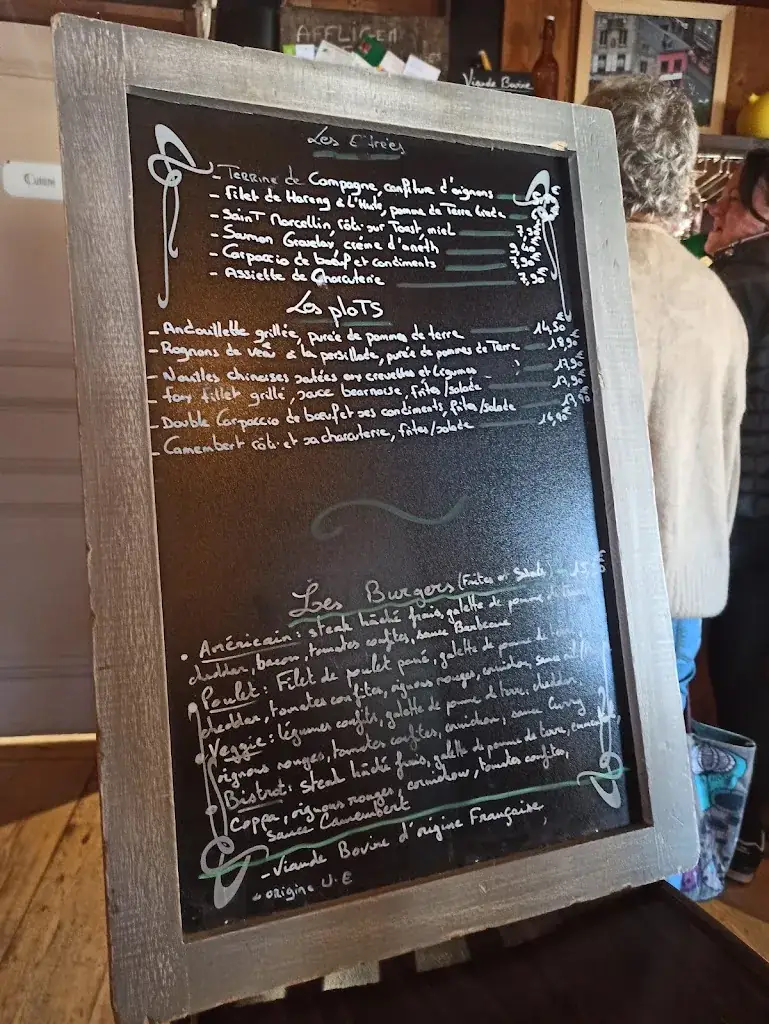 AFFLIGEM
Viande Bovine
Cuisine
Les Entrées
- Terrine de Campagne, confiture d'oignons
- Filet de Hareng à l'Huile, pomme de Terre tiède
- Saint Marcellin, rôti sur Toast, miel
- Saumon Gravelax, crème d'aneth
- Carpaccio de bœuf et condiments
- Assiette de Charcuterie
Les plats
- Andouillette grillée, purée de pommes de terre 14,50€
- Rognons de veau à la persillade, purée de pommes de Terre 18,90
- Nouilles chinoises sautées aux crevettes et légumes 17,90
- faux fillet grillé, sauce bearnaise, frites/salade 17,90€
- Double Carpaccio de bœuf et ses condiments, frites/salade 17,90
- Camembert rôti et sa charcuterie, frites/salade 16,90€
Les Burgers (Frites et Salade)
Américain : steak hâché frais, galette de pomme de terre,
cheddar, bacon, tomates confites, sauce Barbecue
Poulet : Filet de poulet pané, galette de pomme de terre,
cheddar, tomates confites, oignons rouges, cornichon, sauce
Veggie : légumes confits, galette de pomme de terre, cheddar,
oignons rouges, tomates confites, cornichon, sauce Curry
Bistrot : steak hâché frais, galette de pomme de terre,
coppa, oignons rouges, cornichon, tomates confites,
sauce Camembert
- Viande Bovine d'origine Française,
origine U.E